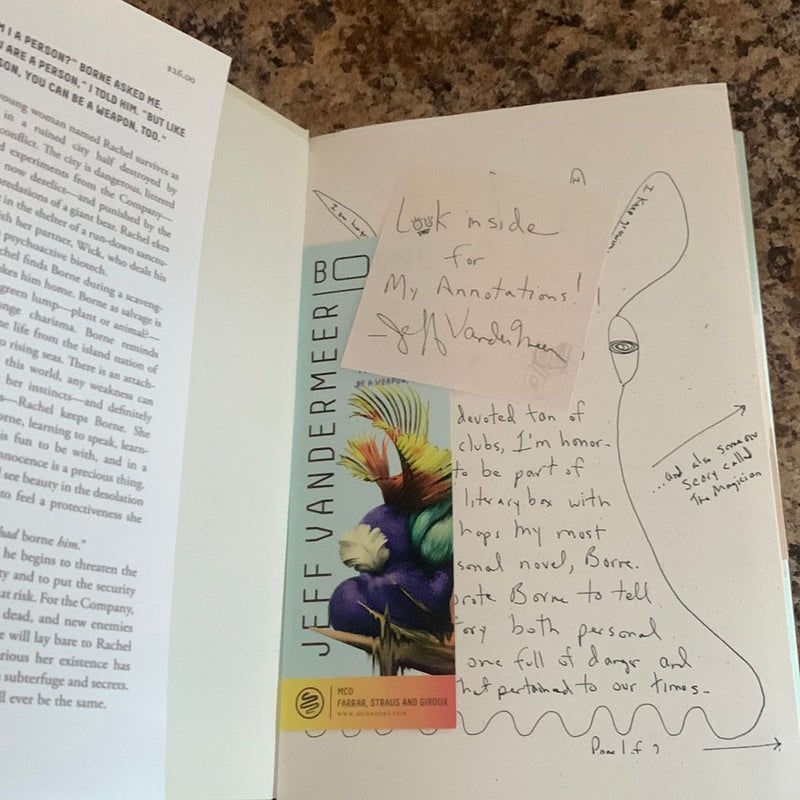 $26.00
M I A PERSON?" BORNE ASKED ME.
U ARE A PERSON," I TOLD HIM. "BUT LIKE
SON, YOU CAN BE A WEAPON, TOO."
young woman named Rachel survives as
in a ruined city half destroyed by
conflict. The city is dangerous, littered
d experiments from the Company—
now derelict—and punished by the
predations of a giant bear. Rachel ekes
e in the shelter of a run-down sanctu-
ith her partner, Wick, who deals his
psychoactive biotech.
chel finds Borne during a scaveng-
akes him home. Borne as salvage is
green lump—plant or animal?—
ange charisma. Borne reminds
ne life from the island nation of
o rising seas. There is an attach-
this world, any weakness can
her instincts—and definitely
s—Rachel keeps Borne. She
orne, learning to speak, learn-
is fun to be with, and in a
nnocence is a precious thing.
l see beauty in the desolation
to feel a protectiveness she
had borne him."
he begins to threaten the
ty and to put the security
at risk. For the Company,
dead, and new enemies
e will lay bare to Rachel
rious her existence has
subterfuge and secrets.
ll ever be the same.
Look inside
for
My Annotations!
—Jeff VanderMeer
BO
JEFF VANDERMEER
BE A WEAPON,
MCD
FARRAR, STRAUS AND GIROUX
WWW.MCDBOOKS.COM
I am
I keep
devoted fan of
clubs, I'm honor-
to be part of
literary box with
haps my most
sonal novel, Borne.
rote Borne to tell
tory both personal
one full of danger and
hat pertained to our times.
...and also someone
scary called
The Magician
Page 1 of 2